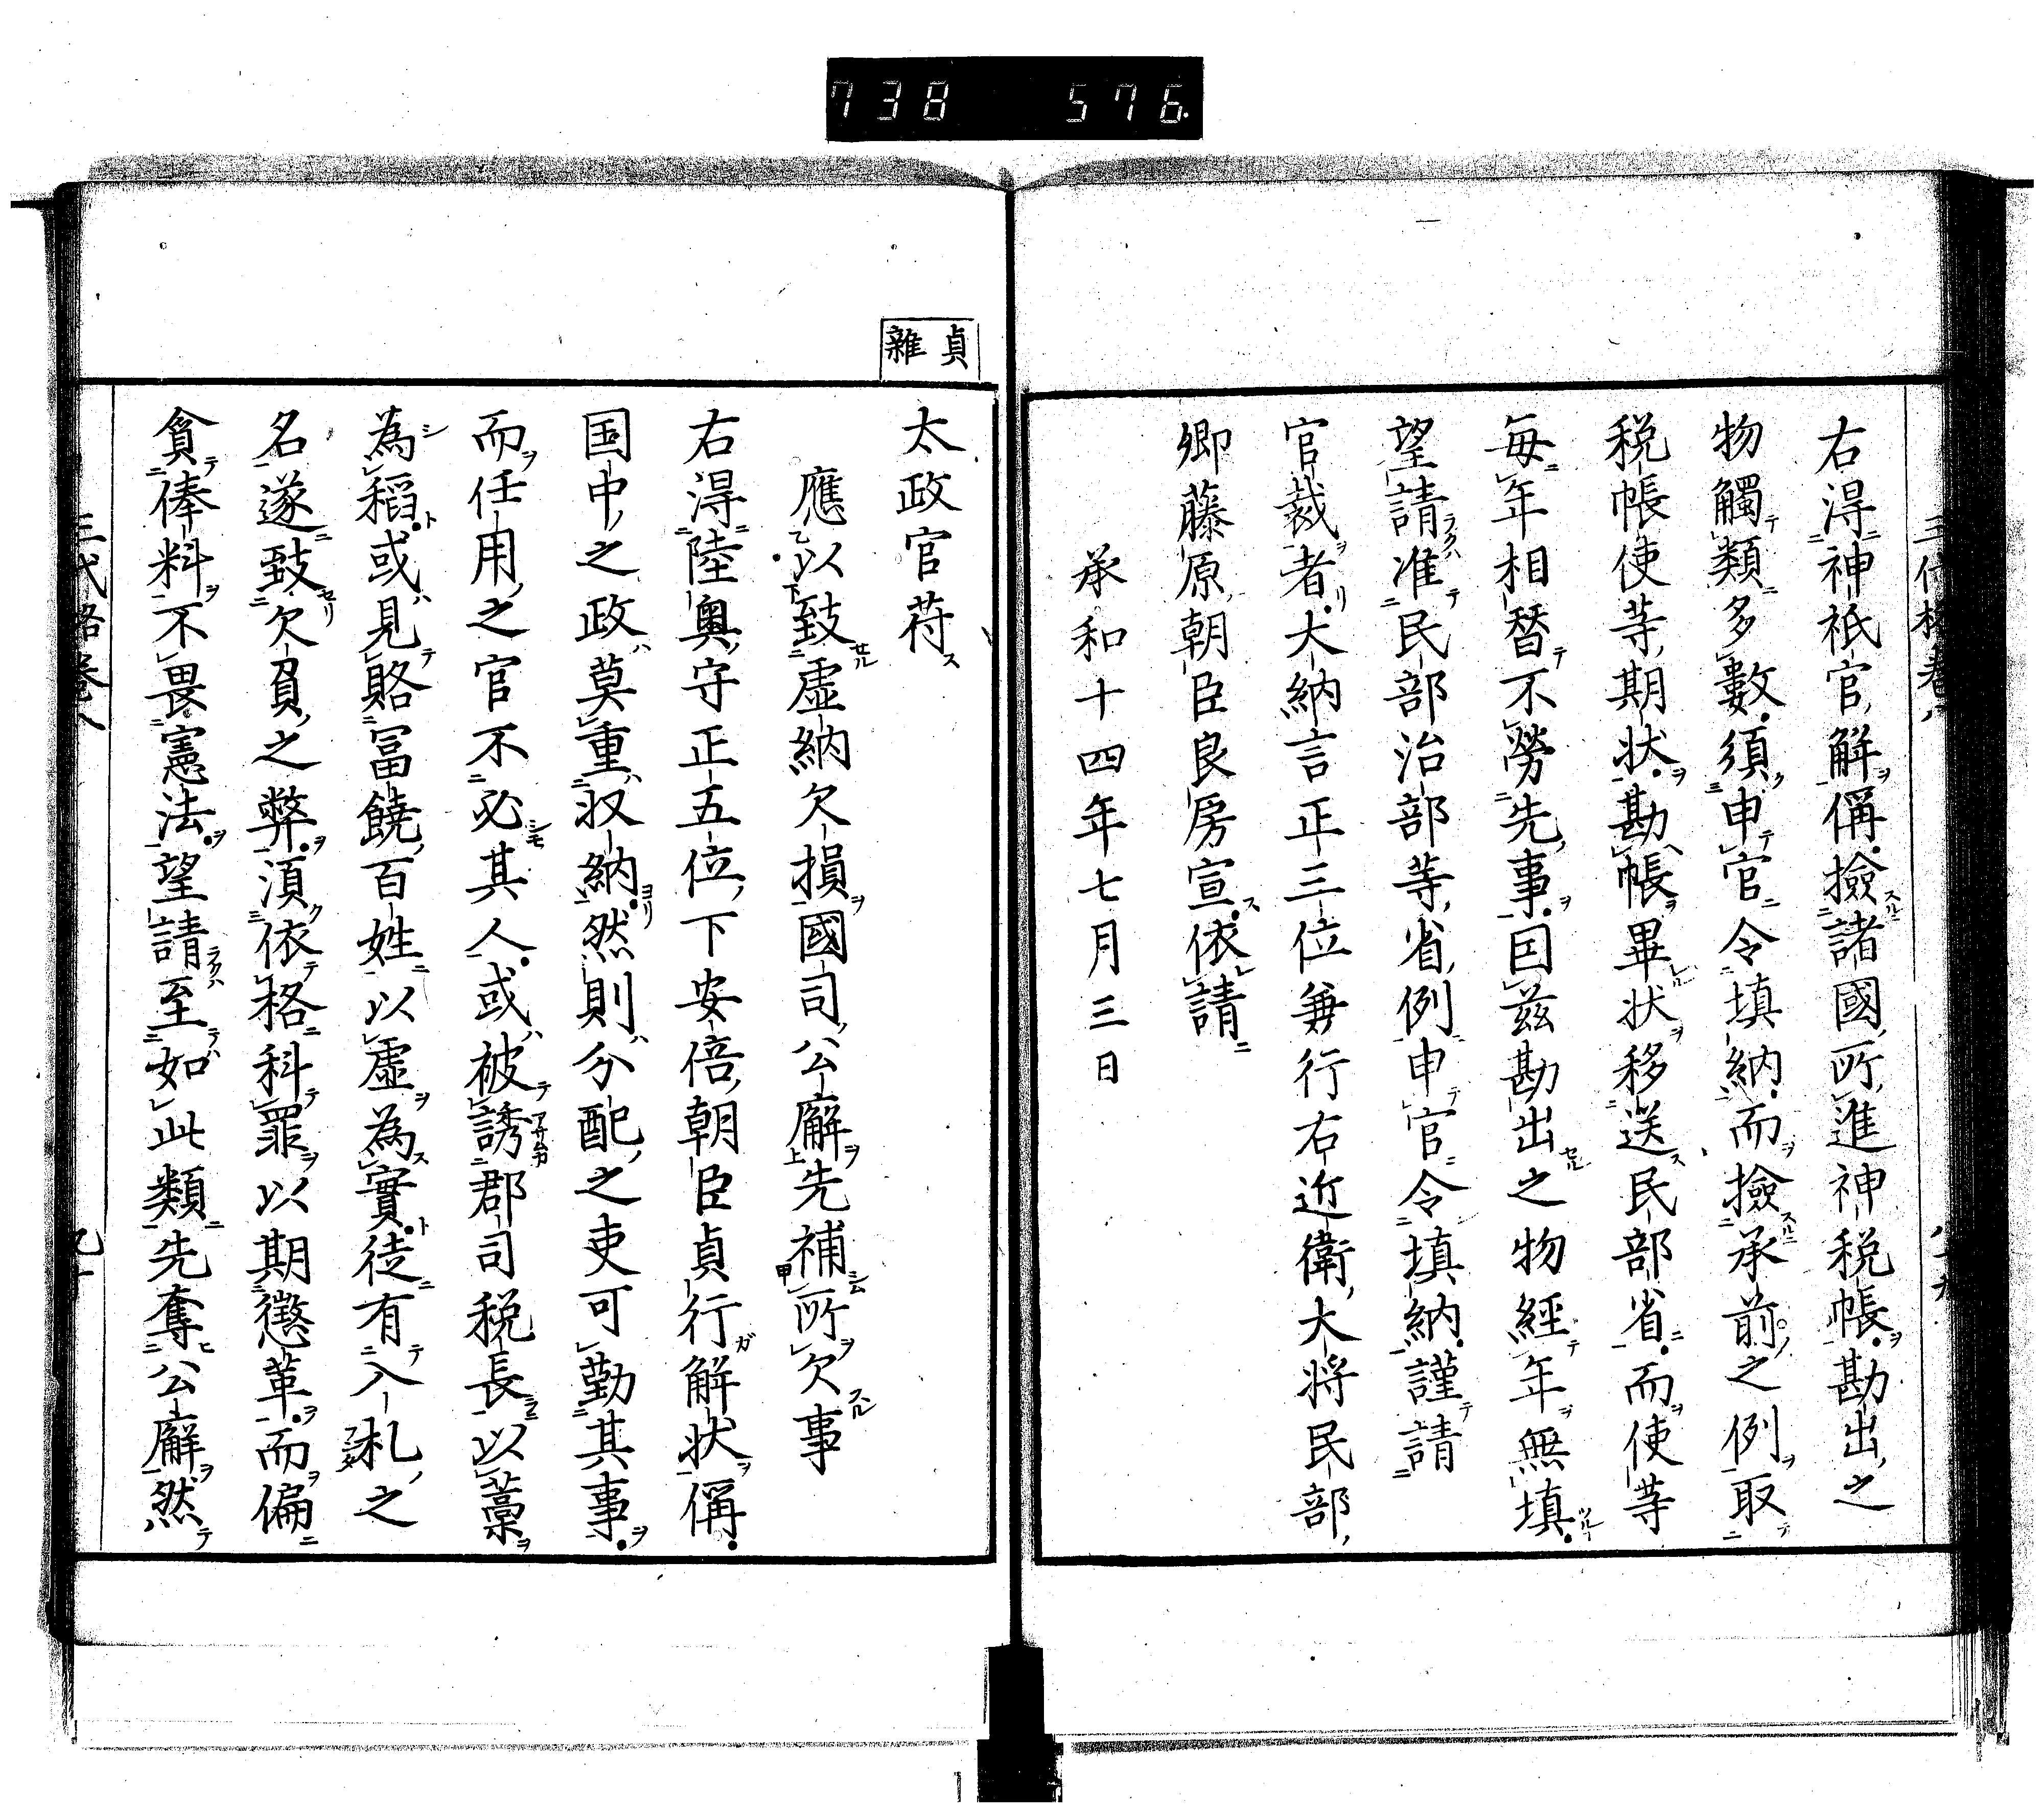 738 576
三代格巻八
右得神祇官解偁撿諸國所進神税帳勘出之
物觸類多數須申官令填納而撿承前之例取
税帳使等期状勘帳畢状移送民部省而使等
毎年相替不勞先事因茲勘出之物經年無填
望請准民部治部等省例申官令填納謹請
官裁者大納言正三位兼行右近衛大将民部
卿藤原朝臣良房宣依請
承和十四年七月三日
貞
雜
太政官符
應以致虚納欠損國司公廨先補所欠事
右得陸奥守正五位下安倍朝臣貞行解状偁
国中之政莫重収納然則分配之吏可勤其事
而任用之官不必其人或被誘郡司税長以藁
為稻或見賂冨饒百姓以虚為實徒有入札之
名遂致欠負之弊湏依格科罪以期懲革而偏
貪俸料不畏憲法望請至如此類先奪公廨然
三代格巻八 九十